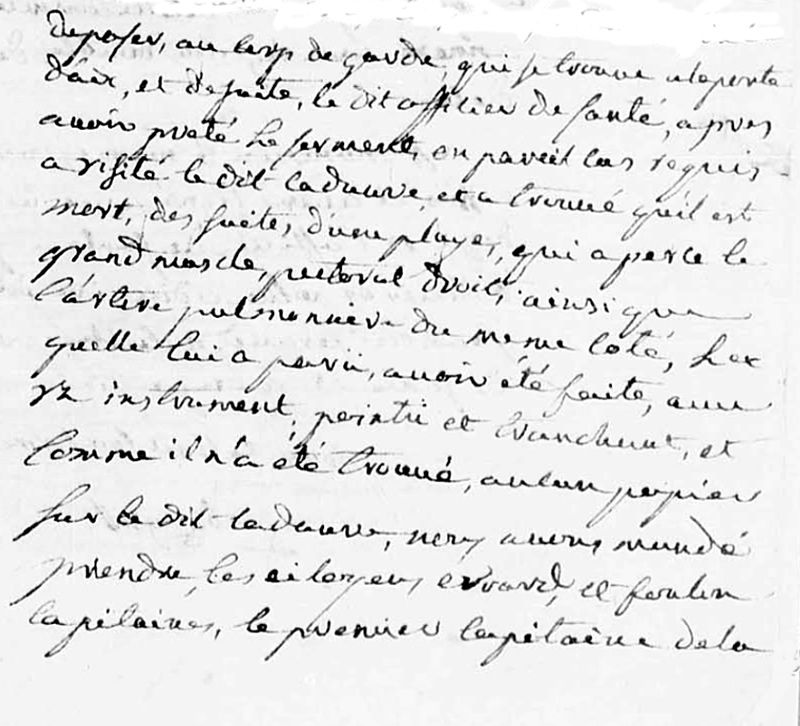 deposer, au corp de garde, qui se trouve a la porte
d'aix, et de suite, le dit officier de santé, apres
avoir preté le serment, en pareil cas requis
a visité le dit cadavre, et a trouvé qu'il est
mort, des suites d'une playe, qui a percé le
grand muscle, pectoral droit, ainsi que
l'artere pulmonnere du meme coté, 
quelle lui a paru, avoir été faite, avec
un instrument, pointu et tranchant, et
comme il n'a été trouvé, aucun papier
sur le dit cadavre, nous avons mandé
prendre, les citoyens evrard, et foulon
capitaines, le premier capitaine de la